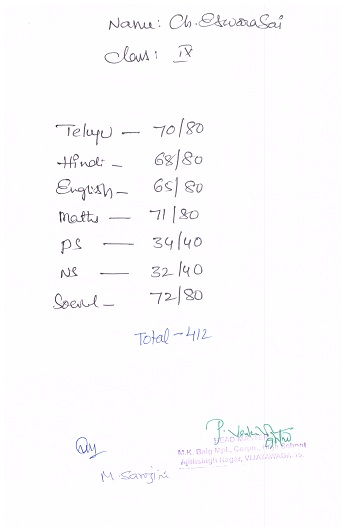 Name: Ch. Eswara Sai
Class: IX
Telugu — 70/80
Hindi — 68/80
English — 65/80
Maths — 71/80
PS — 34/40
NS — 32/40
Social — 72/80
Total - 412
HEAD MASTER
M.K. Baig Mpl., Corpn., High School
Ajithsingh Nagar, VIJAYAWADA-15.
M. Sarojini